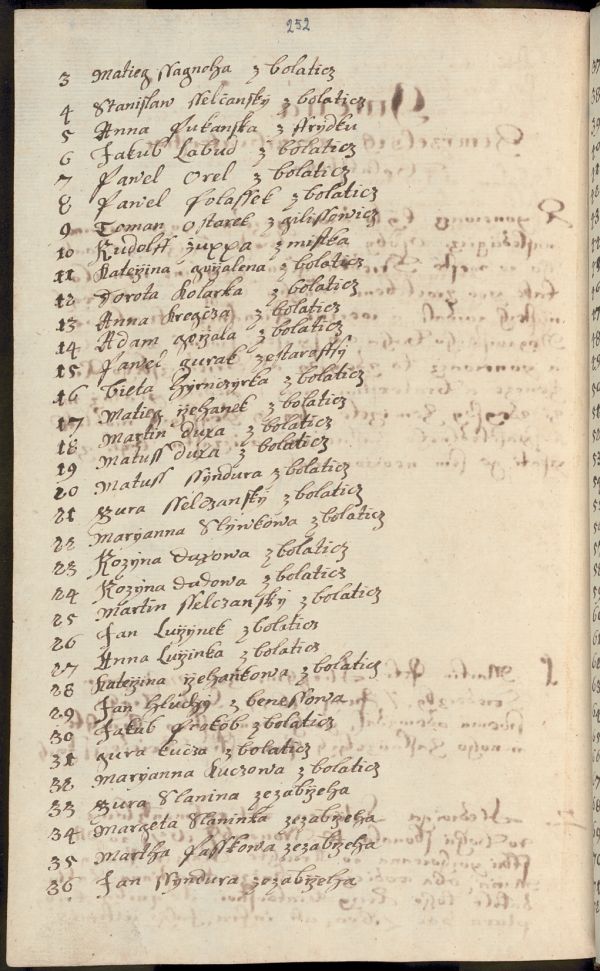 252
3 Matieg Ssagnoha z bolaticz
4 Stanislaw Sselčanský z bolaticz
5 Anna Fukanska z Strydku
6 Jakub Labud z bolaticz
7 Pawel Orel z bolaticz
8 Pawel Polassek z bolaticz
9 Toman Ostarek z gilissowicz
10 Rudolff z mistka
11 Katežina z bolaticz
12 Dorota Kolarka z bolaticz
13 Anna Kregcza z bolaticz
14 Adam z bolaticz
15 Pawel gurak
16 bieta z bolaticz
17 Matieg z bolaticz
18 Martin duxa z bolaticz
19 Matuss duxa z bolaticz
20 Matuss Ssyndura z bolaticz
21 gura Sselczanský z bolaticz
22 Maryanna Slywkowa z bolaticz
23 Rozyna daxowa z bolaticz
24 Rozyna dudowa z bolaticz
25 Martin Sselczanský z bolaticz
26 Jan Lužynek z bolaticz
27 Anna Lužinka z bolaticz
28 Katežina z bolaticz
29 Jan Hluchý z benessowa
30 Jakub Prokob z bolaticz
31 gura kucza z bolaticz
32 Maryanna Kuczowa z bolaticz
33 gura Slanina zezabržeha
34 Margeta Slaninka zezabržeha
35 Martha Passkowa zezabržeha
36 Jan Ssyndura zezabržeha